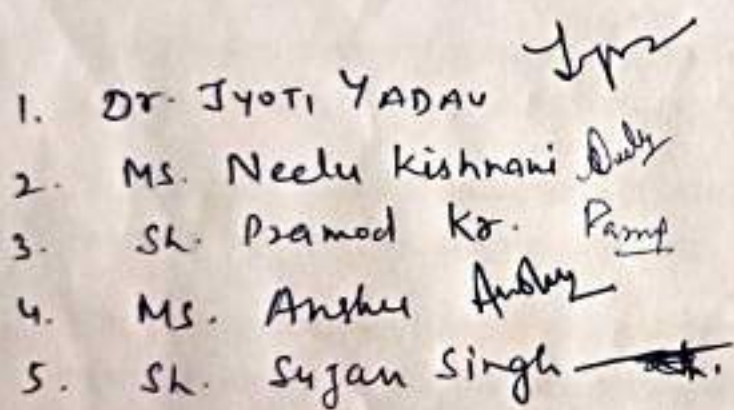 1. Dr. JYOTI YADAV
2. Ms. Neelu Kishnani
3. Sh. Pramod Kr.
4. Ms. Anshu Anshu
5. Sh. Sujan Singh